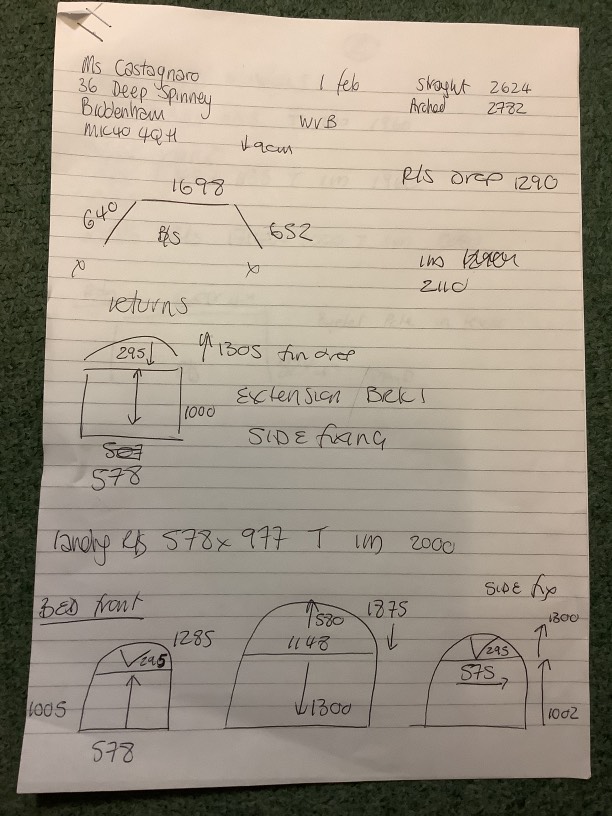 Ms Castagnaro
36 Deep Spinney
Biddenham
MK40 4QH
1 feb
WVB
Straght 2624
Arched 2782
↓9cm
R/S Drop 1290
1698
640
R/S
652
x x
2110
returns
295↓
↑1305 fin drop
1000
Extension
SIDE fixing
578
landing R/S 578x 977 T 1m 2000
BED front
SIDE fix
1285
295
1005
578
580
1148
1300
1875
↓
1300
295
575
1002